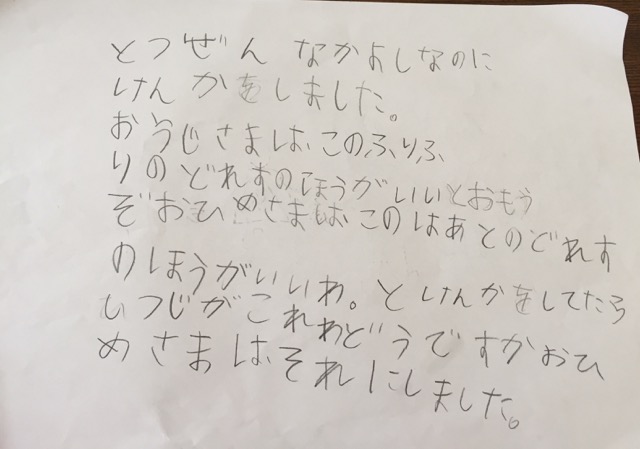 とつぜん なかよしなのに
けんかをしました。
おうじさまは、このふりふ
りのどれすのほうがいいとおもう
ぞおひめさまは、このはあとのどれす
のほうがいいわ。とけんかをしてたら
いつじがこれわどうですかおひ
めさまはそれにしました。